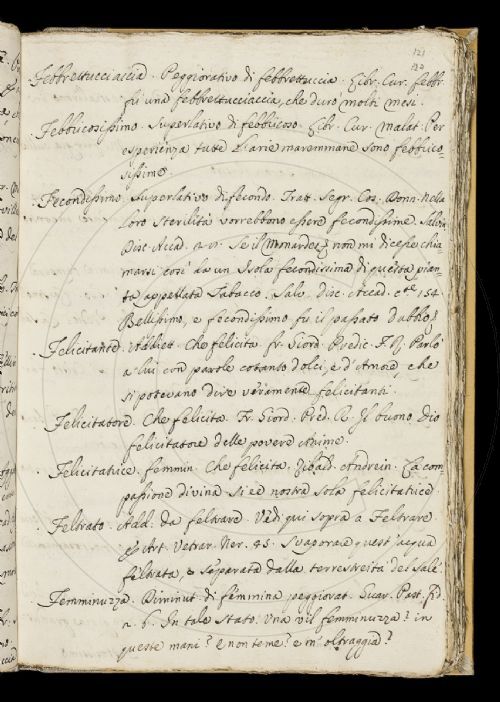 121
Febbrettucciaccia. Peggiorativo di febbrettuccia. Libr. Cur. febbr.
fu una febbrettucciaccia, che durò molti mesi.
Febbricosissimo. Superlativo di febbricoso. Libr. Cur. Malat. Per
esperienza tutte l'arie maremmane sono febbrico-
sissime.
Fecondissimo. Superlativo di fecondo. Tratt. Segr. Cos. Donn. Nella
loro sterilità vorrebbono essere fecondissime. Salvin.
Disc. Accad. Se il Monardes non mi dicesse chia-
marsi così da un Isola fecondissima di questa pian-
ta appellata Tabacco. Salv. Disc. Accad. 154.
Bellissimo, e fecondissimo fu il passato dubbio
Felicitante. Addiet. Che felicita. Fr. Giord. Predic. R. Parlò
a lui con parole cotanto dolci, e d'Amore, che
si potevano dire veramente felicitanti.
Felicitatore. Che felicita. Fr. Giord. Pred. R. Il buono Dio
felicitatore delle povere Anime.
Felicitatrice. femmin. Che felicita. Zibald. Andrein. La com-
passione divina si è nostra sola felicitatrice.
Feltrato. Add. da feltrare. Vedi qui sopra a Feltrare
Art. Vetrar. Ner. 45. Svaporare quest'acqua
feltrata, e separata dalla terrestreità del Sale.
Femminuzza. Diminut. di femmina peggiorat. Guar. Past. fid.
2. 6. In tale stato. Una vil femminuzza? in
queste mani? E non teme? e m'oltraggia?